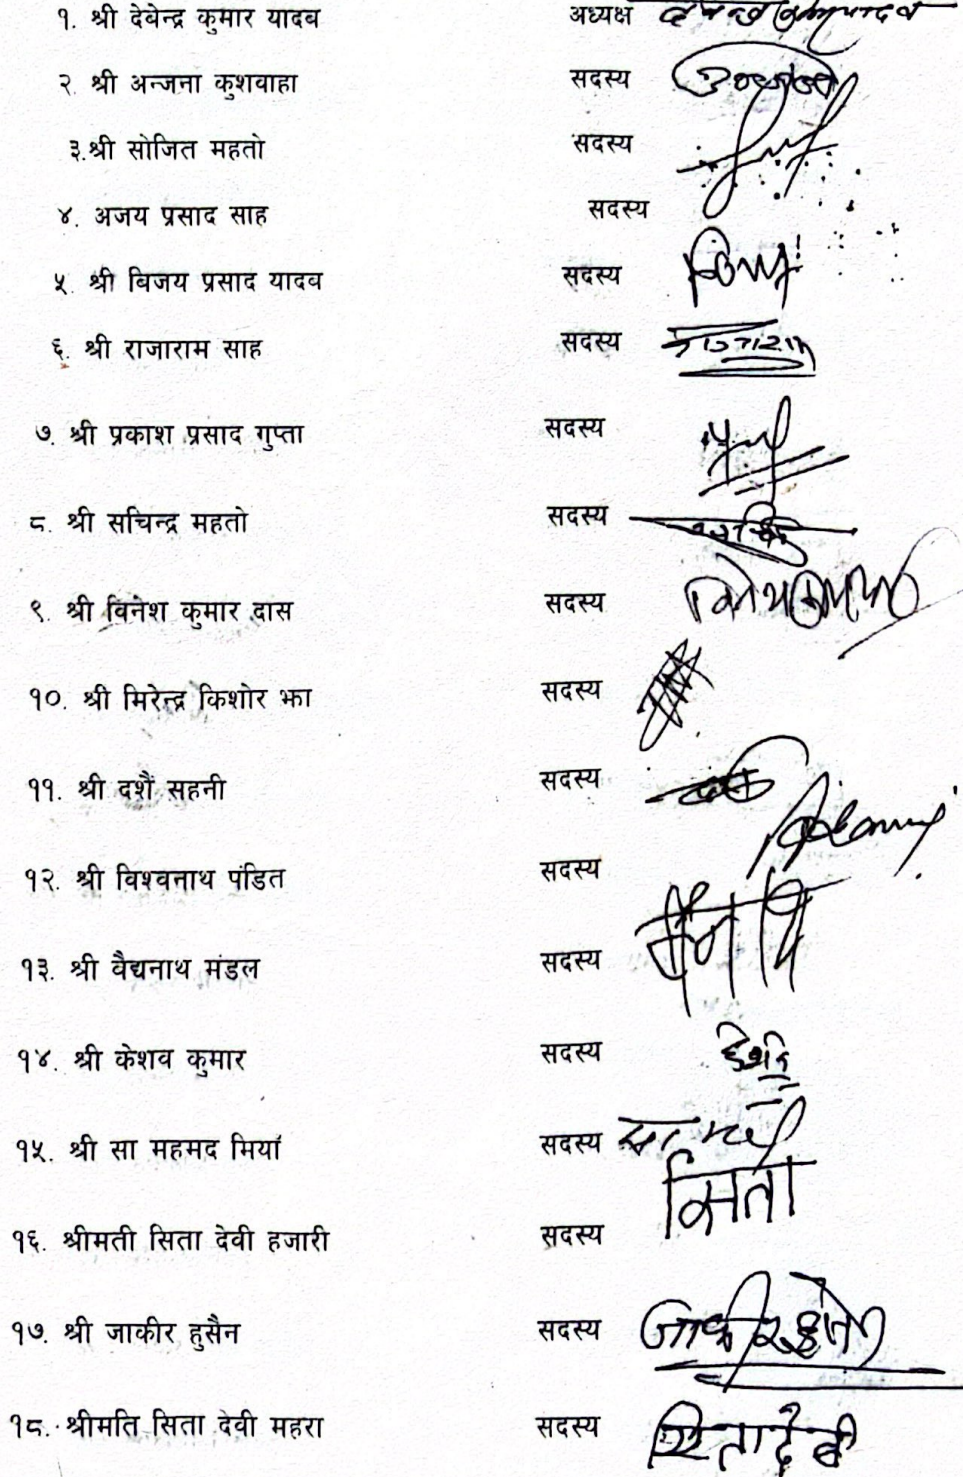 १. श्री देबेन्द्र कुमार यादब अध्यक्ष
२ श्री अन्जना कुशवाहा सदस्य
३.श्री सोजित महतो सदस्य
४. अजय प्रसाद साह सदस्य
५ श्री बिजय प्रसाद यादब सदस्य
६. श्री राजाराम साह सदस्य राजाराम
७. श्री प्रकाश प्रसाद गुप्ता सदस्य
८. श्री सचिन्द्र महतो सदस्य
९ श्री विनेश कुमार दास सदस्य
१०. श्री मिरेन्द्र किशोर झा सदस्य
११. श्री दशैं सहनी सदस्य
१२. श्री विश्वनाथ पंडित सदस्य
१३. श्री वैद्यनाथ मंडल सदस्य
१४. श्री केशव कुमार सदस्य
१५. श्री सा महमद मियाँ सदस्य
सिता
१६. श्रीमती सिता देवी हजारी सदस्य
१७. श्री जाकीर हुसैन सदस्य
१८. श्रीमति सिता देवी महरा सदस्य सितादेवी